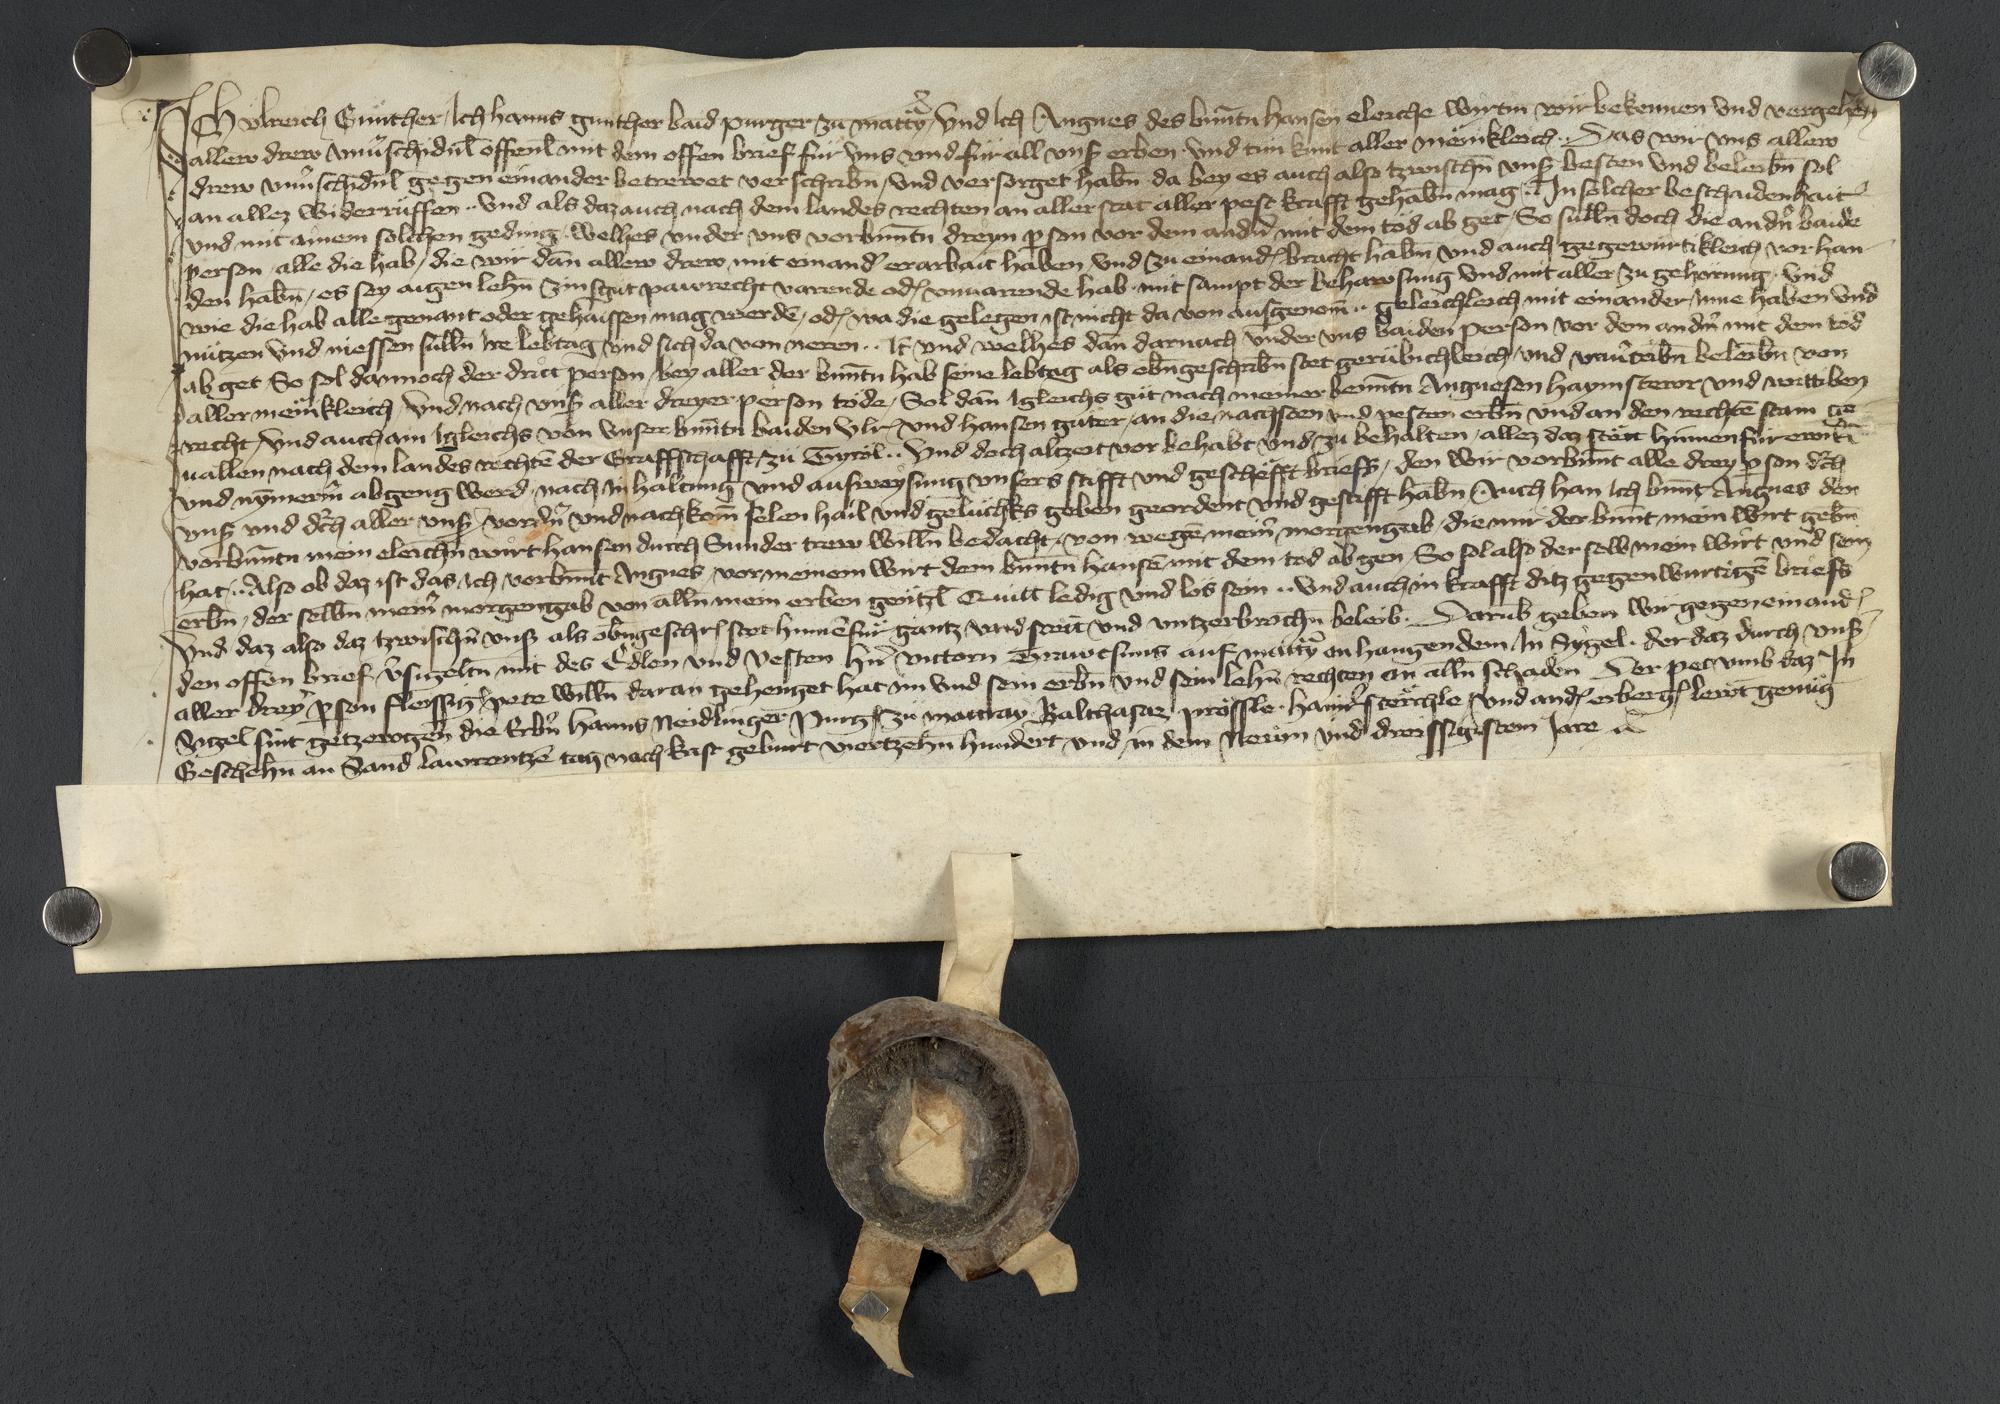 Ich vlreich Günther / Ich hanns gunther baid purger zu mattray / Vnd Ich Angnes des bnn̄tn hansen eleiche wirtin wir bekennen vnd vergehen
allew drew vnu̓schidnl̄ offenl̄ mit dem offen brief für vns vnd für all vnß erben · vnd tun kunt aller mänikleich ·· Das wir vns allew
drew vnu̓schidnl gegen einander betrewet verschribn̄ / vnd versorget habn̄ da bey es auch also tzwischn̄ vnß besten vnd beleibn̄ sol
an allez widerrüffen ·· Vnd als daz auch nach dem landes rechten an aller stat aller pest krafft gehabn̄ mag ·· In solcher beschaidenhait
vnd mit ainem solichen geding · welhes vnder vns vorbnn̄tn dreyn pson vor dem andn̓ mit dem tod ab get / So sülln̄ doch die andn̓ baide
person / alle die hab / die wir dān allew drew mit einand̓ erarbait haben vnd zu einand̓ bracht habn̄ vnd auch gegewürtikleich vor han-
den habn̄ / es sey aigen lehn̄ zinsgut pawrecht varende od̓ vnuarende hab · mit sampt der behawsung vnd mit aller zu gehorung · Vnd
wie die hab alle genant oder gehaissen mag werdē / od̓ wa die gelegen ist nicht da von ausgenom̄ ·· geleichleich mit einander / Inne haben vnd
nützen vnd niessen sulln̄ Ire lebtag vnd sich da von neren ·· It̄ vnd welhes dān darnach vnder vns baiden person vor dem andn̓ mit dem töd
ab get / So sol dannoch der dritt person / bey aller der bnn̄tn hab seine lebtag als obn̄geschribn̄ stet gerübichleich / vnd vnu̓tribn̄ beleibn̄ von
aller mänikleich / Vnd nach vnß aller dreyer person töde / Sol dān Igleichs güt nach meiner benn̄tn Angnesen haymstewr vnd wittiben
recht / Vnd auch ain Igleichs von vnser bnn̄tn baiden Vlr̄ vnd hansen güter / an die nachsten vnd pesten erbn̄ vnd an den rechtē stam ge
uallen nach dem landes rechtē der Graffschafft zu Tyrol ·· Vnd doch altzeit vor behabt vnd zu behalten / allez daz stätt hinnenfür ewikl̄
vnd nymerm̓ abgeng werd · nach inhaltung vnd ausweysung vnsers stifft vnd geschefft briefs / den wir vorbnn̄t alle drey pson dch̄
vnß vnd dch̄ aller vnß vordn̓ vnd nachkom̄ selen hail vnd gelücks geben geordent vnd gestifft habn̄ Auch han Ich bnn̄t Angnes den
vorbnn̄tn mein eleichn̄ wirt hansen durch Sunder trew willn̄ bedacht / von wegē mein̓ morgengab / die mir der bnn̄t mein wirt gebn̄
hat ·· Also ob daz ist das Ich vorbnn̄t Angnes vor meinem wirt dem bnn̄tn hansē mit dem tod ab gen / So sol also der selb mein wirt vnd sein
erbn̄ / der selbn̄ mein̓ morgengab von alln̄ mein erben gëntzl̄ Quitt ledig vnd los sein ·· Vnd auch in krafft ditz gegenwurtigē briefs
Vnd daz also daz tzwischn̄ vnß als obn̄geschr̄ stet hinnēfür gantz vnd stätt vnd vntzerbrochn̄ beleib · Darūb geben wir gegen einand̓
den offen brief v̓sigeltn mit des Edlen vnd Vesten hn̓ victorn Trawtsuns auf mattray an hangendem In Sygel · der daz durch vnß
aller dreyr pson fleyssigr̄ pete willn̄ daran gehenget hat im vnd sein erbn̄ vnd sein lehn̄ rechten an alln̄ schaden Der pet vmb daz In
Sigel sint getzewgen die Erbn̓ hanns Neidlinger Purg̓ zu mattray Balthasar prössle · hainr̓ sterchle / vnd and̓ erberg̓ lewt genüg
Geschehn̄ an Sand lawrentzē tag nach krist geburt viertzehn̄ hundert vnd in dem Newn vnd dreissigistem Jare